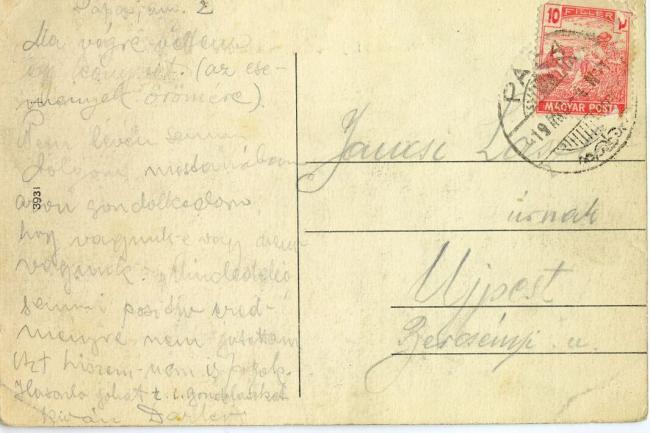 Ma végre vettem
(az ese-
mények örömére).
Nem lévén semmi
dolgom, mostanában
azon gondolkodom
hogy vagyunk-e vagy nem
vagyunk. Mindeddig
semmi pozitív ered-
ményre nem jutottam
azt hiszem nem is fogok.
Hasonló jókat
kíván
3931
10 FILLER
MAGYAR POSTA
PÁPA
Jancsi
úrnak
Ujpest
Bercsényi u.